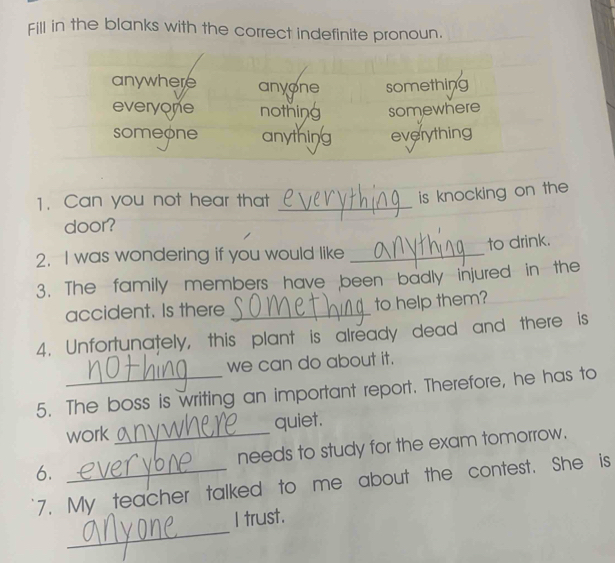 Fill in the blanks with the correct indefinite pronoun.
anywhere anyone something
everyone nothing somewhere
someone anything everything
1. Can you not hear that everything is knocking on the
door?
2. I was wondering if you would like anything to drink.
3. The family members have been badly injured in the
accident. Is there something to help them?
4. Unfortunately, this plant is already dead and there is
nothing we can do about it.
5. The boss is writing an important report. Therefore, he has to
work anywhere quiet.
6. everyone needs to study for the exam tomorrow.
7. My teacher talked to me about the contest. She is
anyone I trust.